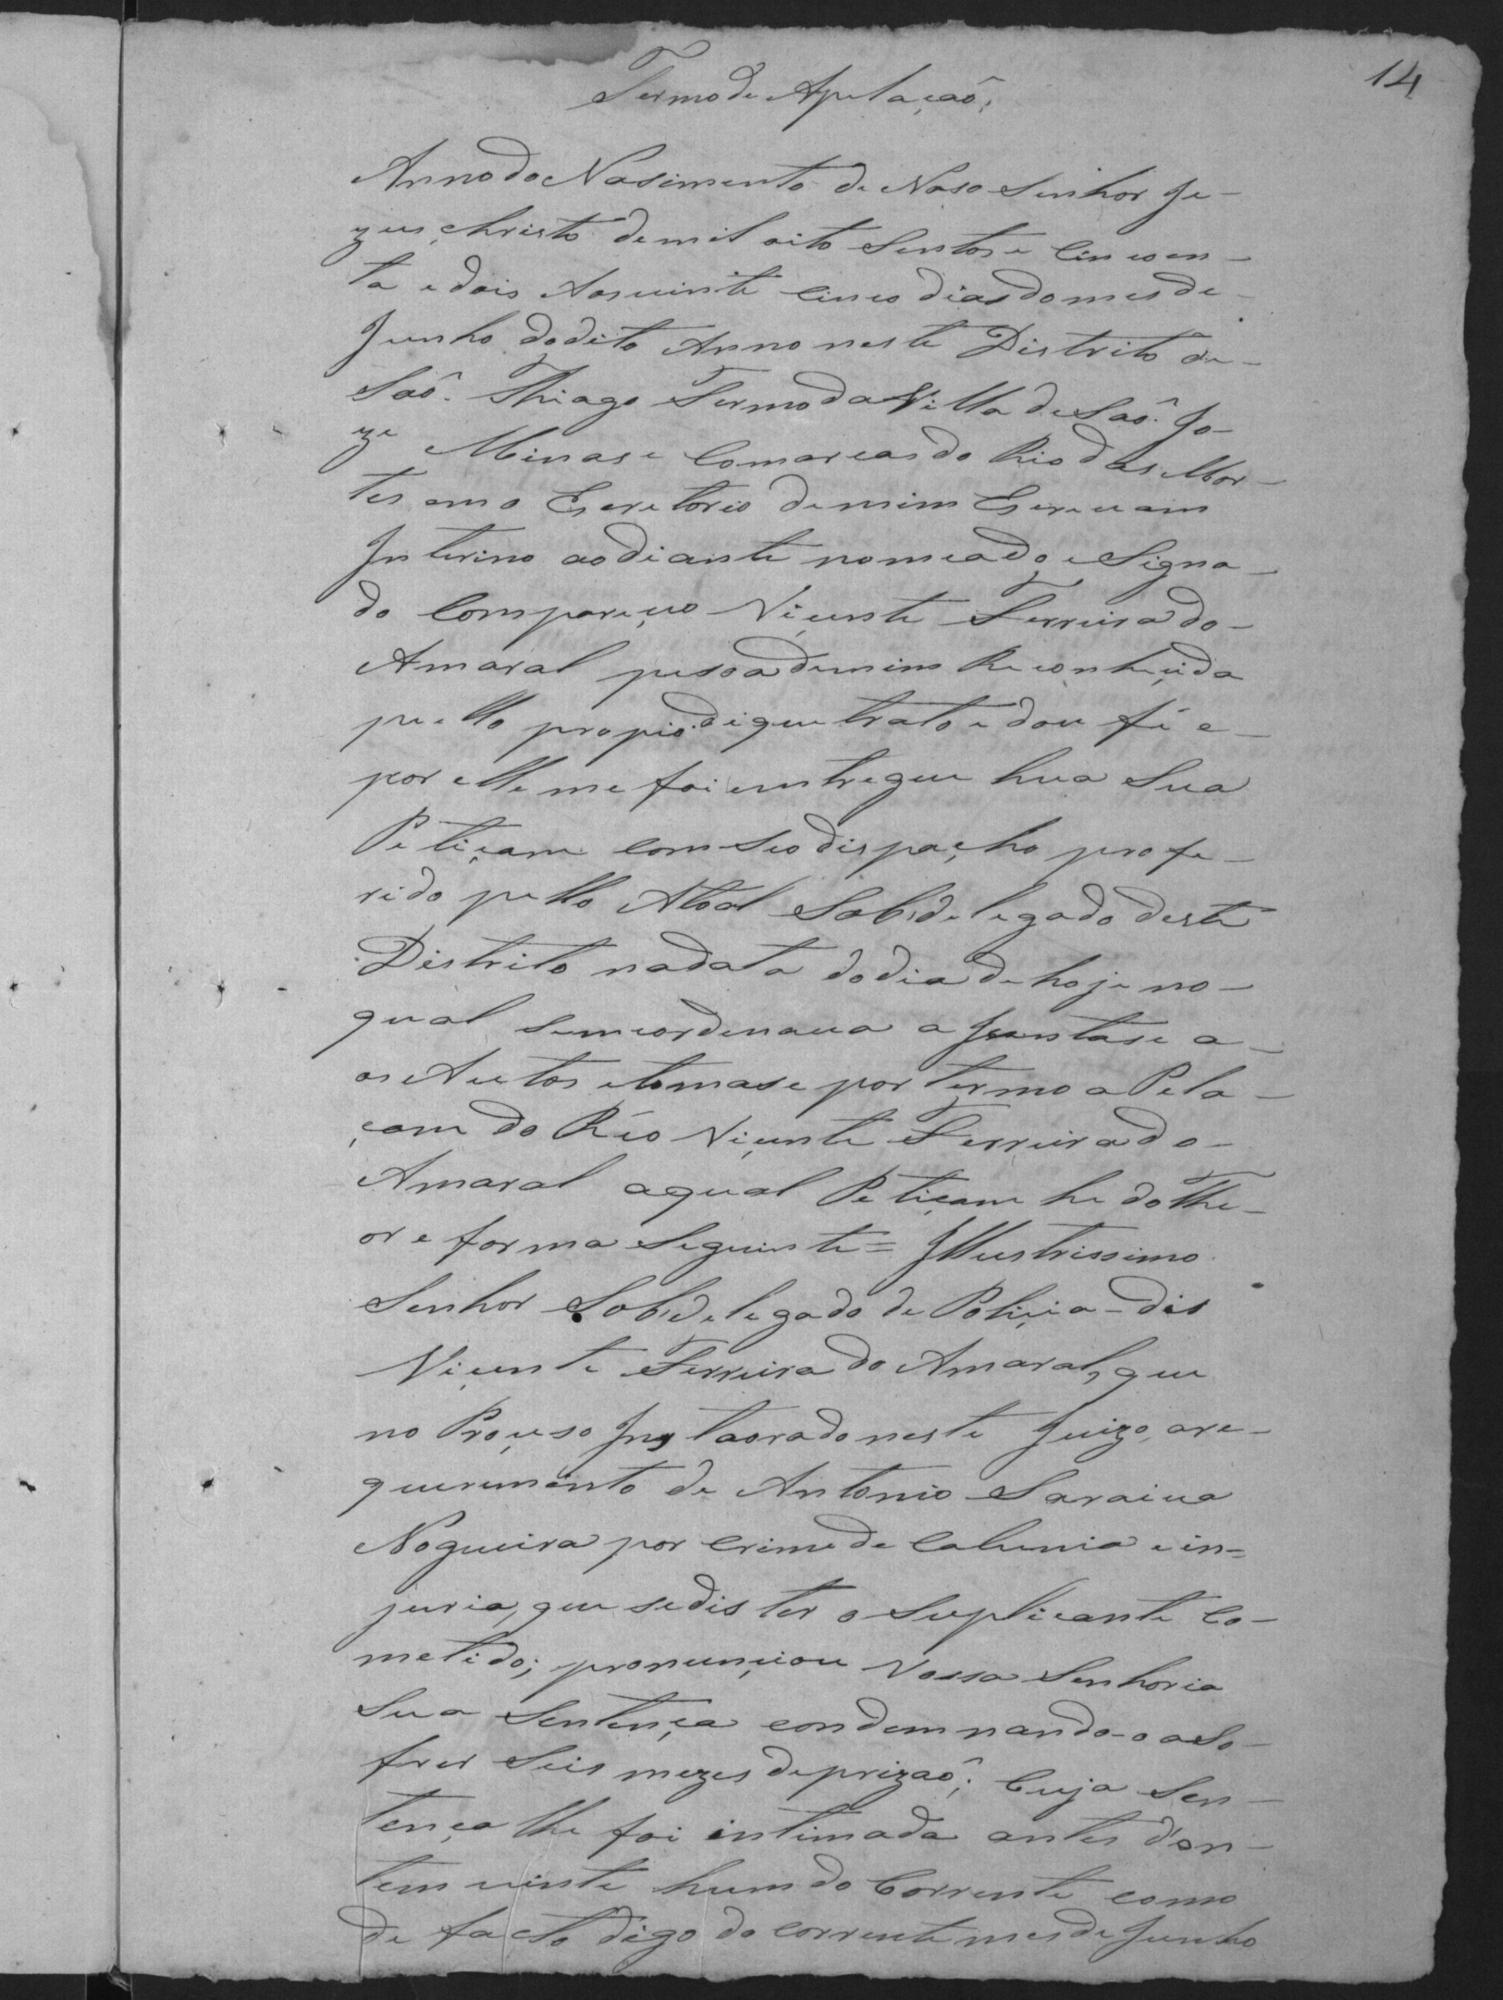 14
Termo de Apelaçaô,
Anno do Nasimento de Noso Senhor Je-
zus Christo de mil oito Sentos e Cincoen-
ta e dois Aos vinte cinco dias do mes de
Junho do dito Anno neste Distrito de
Saô Thiago Termo da Villa de Saô Jo-
ze Minas e Comarcas do Rio das Mor-
tes em o Escretorio de mim Escrevam
Interino ao diante nomeado e Signa-
do Compareçeo Viçente Ferreira do
Amaral pesoa de mim Reconheçida
pello propio di que trato e dou fé e
por elle me foi entregue hua Sua
Petiçam com seo dispaçho profe-
rido pello Atoal Sobdelegado deste
Distrito na data do dia de hoje no
qual Semeordenava a Juntase a-
os Autos e tomase por termo a Pela-
çam do Réo Viçente Ferreira do
Amaral a qual Petiçam he do The-
or e forma Seguinte = Illustrissimo
Senhor Sobdelegado de Poliçia - dis
Viçente Ferreira do Amaral, que
no Proçeso Instaorado neste Juizo, a re-
querimento de Antonio Saraiva
Nogueira por crime de Calunia e in=
juria, que se dis ter o Suplicante Co-
metido; pronunçiou Vossa Senhoria
Sua Sentença condemnando-o a So-
frer Seis mezes de prizaô; Cuja Sen-
tença lhe foi intimada antes d'on-
tem vinte hum do Corrente como
de facto digo do corrente mes de Junho